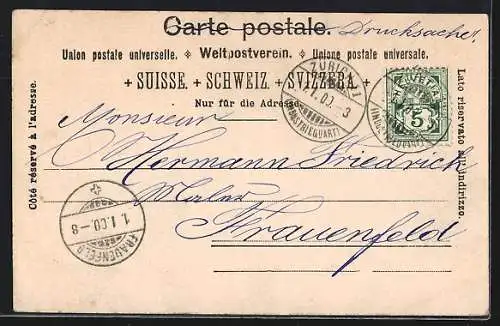 Carte postale. Drucksache!
Union postale universelle. Weltpostverein. Unione postale universale.
+ SUISSE. + SCHWEIZ. + SVIZZERA. +
Nur für die Adresse.
Côté réservé à l'adresse.
Lato riservato all'indirizzo.
ZÜRICH
(INDUSTRIEQUART)
HELVETIA
5
Monsieur
Hermann Friedrich
Maler
Frauenfeld
1.I.00.-8
FRAUENFELD